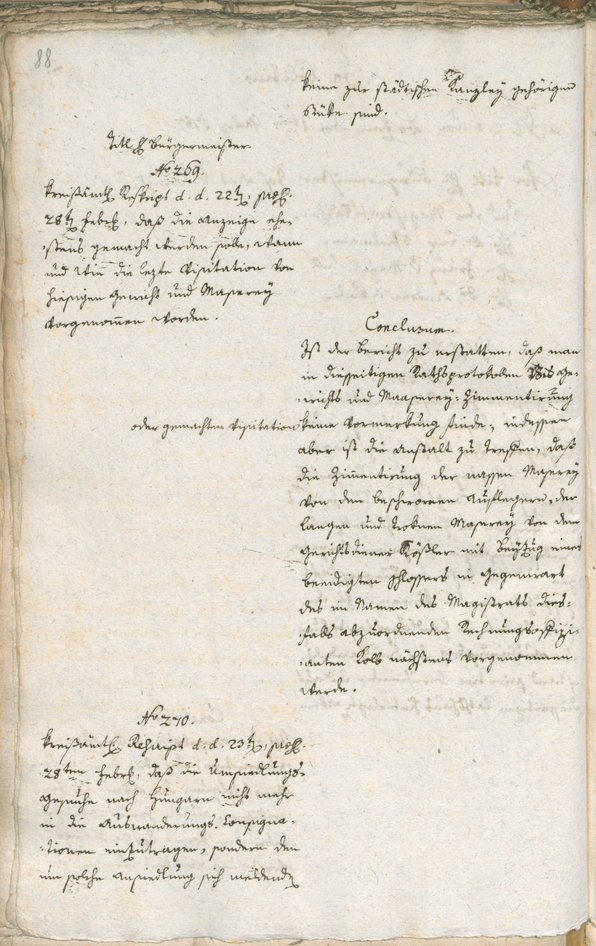 88
keine zur städtischen Kanzley gehörigen
Stüke sind.
Titl. H Bürgermeister.
No 269.
Kreißämtl. Reskript d. d. 22t, präs.
28t Febr., daß die Anzeige ehe-
stens gemacht werden solle, wann
und wie die lezte Visitation von
hiesigen Gewicht und Maserey
vorgenommen worden.
Conclusum.
Ist der Bericht zu erstatten, daß man
in diesseitigen Rathsprotokollen Ge-
wichts und Maaserey-Zimmentirung
oder gemachten Visitation keine Vormerkung finde, indessen
aber ist die Anstalt zu treffen, daß
die Zimentirung der nassen Maserey
von den beschwornen Auflegern, der
langen und troknen Maserey von dem
Gerichtsdiener Rößler mit Beyzug eines
beeidigten Schlossers in Gegenwart
des im Namen des Magistrats dies-
falls abzuordnenden Rechnungsoffizi-
anten Kolb nächstens vorgenommen
werde.
No 270.
Kreißämtl. Rescript d. d. 23t, präs.
28ten Febr., daß die Ansiedlungs-
gesuche nach Hungarn nicht mehr
in die Auswanderungs-Consigna-
tionen einzutragen, sondern den
um solche Ansiedlung sich meldenden